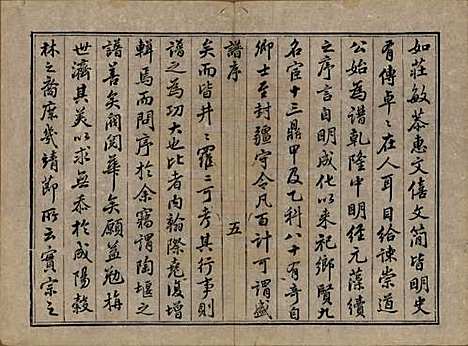 如莊敏恭惠文僖文簡皆明史
有傳卓〻在人耳目給諫崇道
公始為譜乾隆中明經元藻續
之序言自明成化以來祀鄉賢九
名宦十三鼎甲及乙科八十有奇自
卿士至封疆守令凡百計可謂盛
譜序
五
矣而皆井〻羅〻可考其行事則
譜之為功大也比者內翰際堯復增
輯焉而問序於余竊謂陶堰之
譜善矣閥閱華矣願益勉旃
世濟其美以求無忝於成陽穀
林之裔庶幾靖節所云實宗之